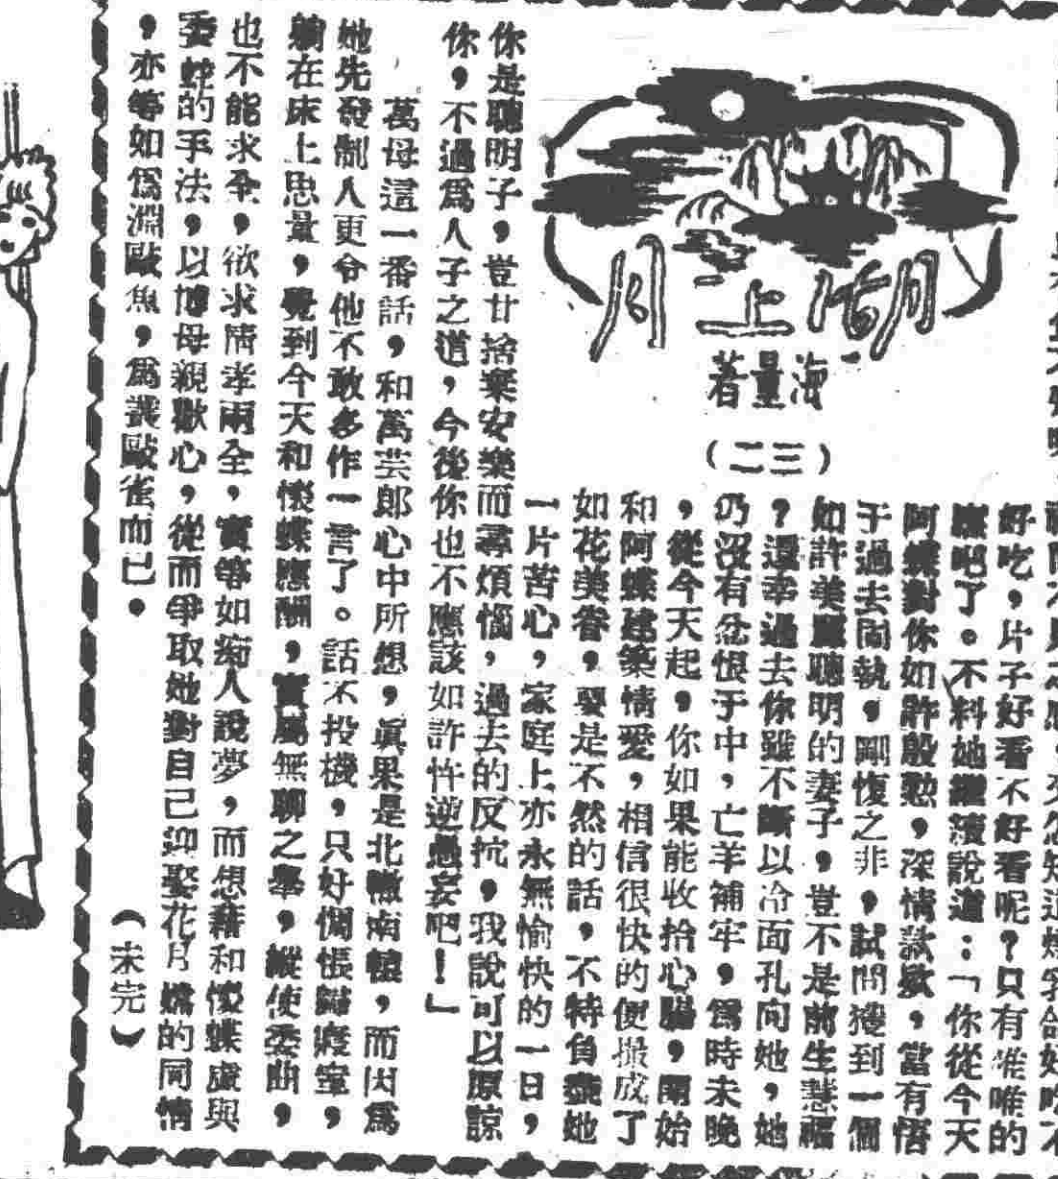 湖上月
海量著
（三二）
好吃，片子好看不好看呢？只有唯唯的
應吧了。不料她繼續說道：「你從今天
阿蝶對你如許殷懃，深情欵欵，當有悟
于過去固執，剛愎之非，試問獲到一個
如許美麗聰明的妻子，豈不是前生慧福
？還幸過去你雖不斷以冷面孔向她，她
仍沒有忿恨于中，亡羊補牢，爲時未晚
，從今天起，你如果能收拾心腸，開始
和阿蝶建築情愛，相信很快的便撮成了
如花美眷，要是不然的話，不特負盡她
一片苦心，家庭上亦永無愉快的一日，
你是聰明子，豈甘捨棄安樂而尋煩惱，過去的反抗，我說可以原諒
你，不過爲人子之道，今後你也不應該如許忤逆愚妄吧！」
萬母這一番話，和萬芸郎心中所想，眞果是北轍南轅，而因爲
她先發制人更令他不敢多作一言了。話不投機，只好惆悵歸寢室，
躺在床上思量，覺到今天和懷蝶應酬，實屬無聊之舉，縱使委曲，
也不能求全，欲求情孝兩全，實等如痴人說夢，而想藉和懷蝶虛與
委蛇的手法，以博母親歡心，從而爭取她對自己迎娶花月嬌的同情
，亦等如爲淵敺魚，爲叢敺雀而已。
（未完）